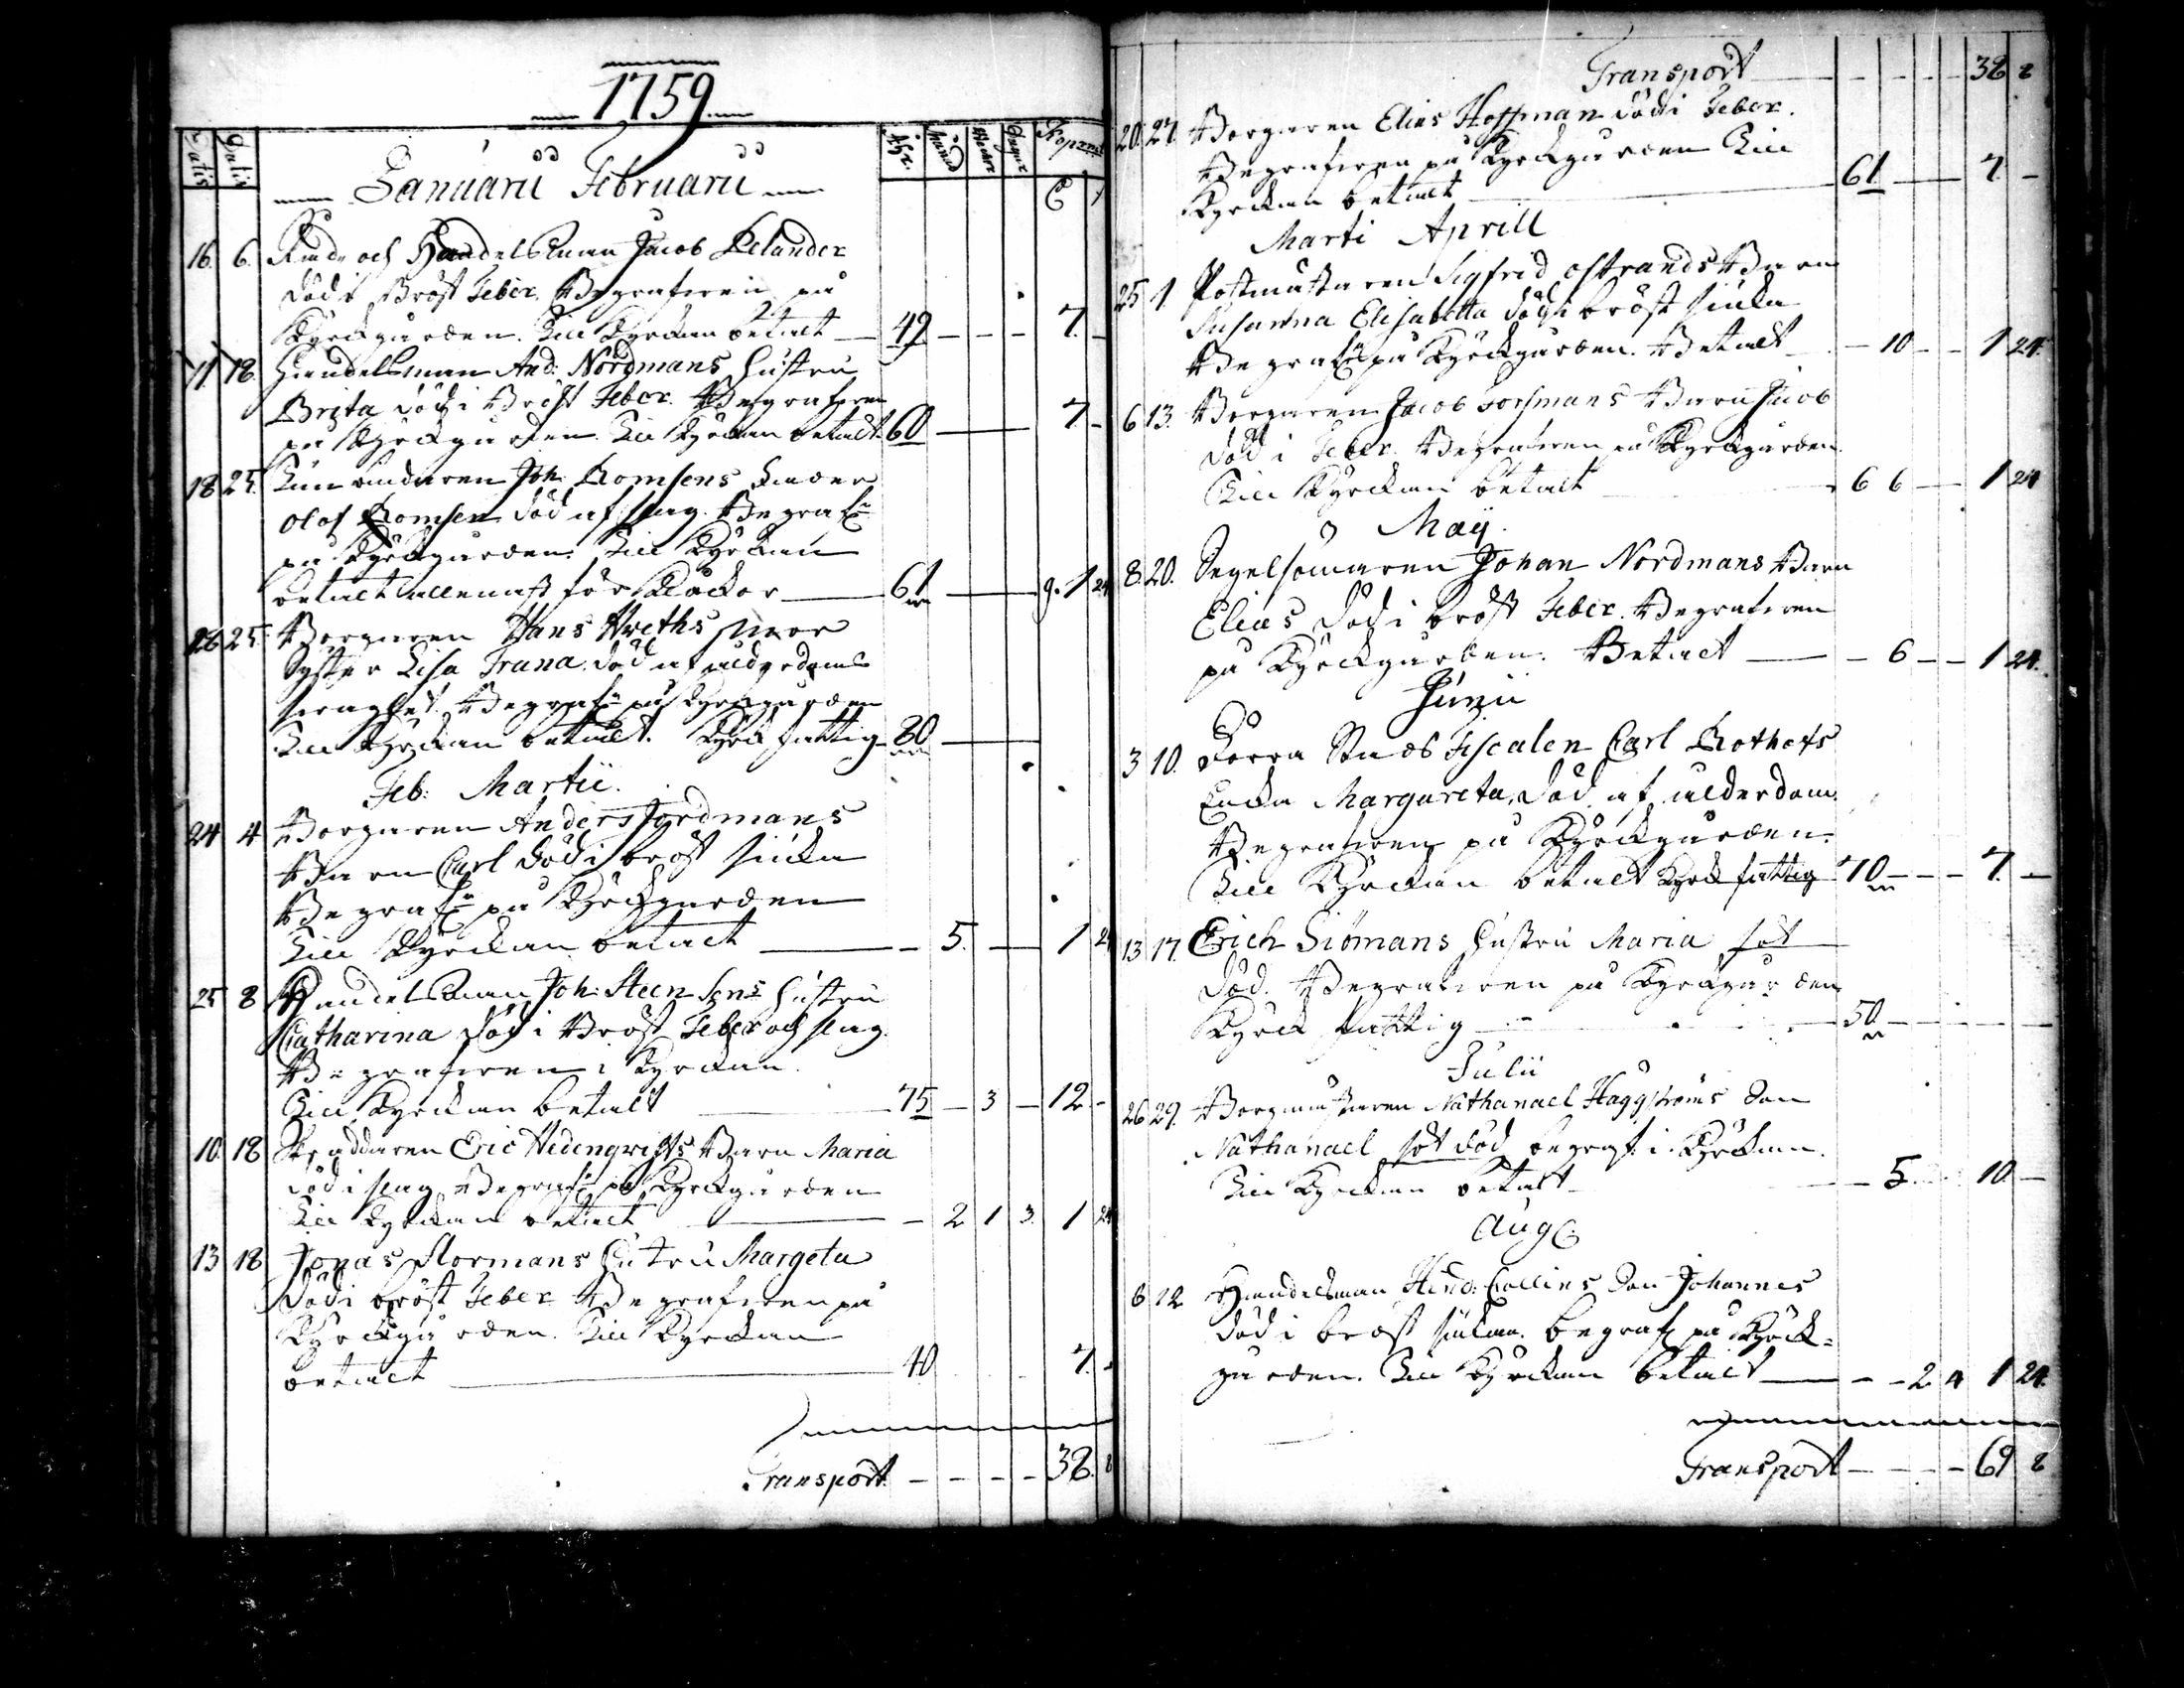 1759.
Datis Datis åhr. Månad Weckor Dagar Kopparm.t
Januarii Februarii
16. 6. Råd- och Handelsman Jacob Pelander
död i Bröst Feber. Begrafven på
Kyrckgården. Till Kyrckan betalt 49 - - - 7. -
11 18. Handelsman And: Nordmans Hustru
Brita död i Bröst Feber. Begrafven
på Kyrckgården. Till Kyrckan betalt. 60 7 -
18 25. Joh: Bomsens fader
Olof Bomsen död af slag. Begraf:n
på Kyrckgården. Till Kyrckan
betalt allenast för Klåckor 61 9. 1 24
26 25. Borgaren Hans Wreths svär
Syster Lisa Trana. död af ålderdoms
svaghet. Begraf:n på Kyrckgården
Till Kyrckan betalt. Kyrck fattig 80
Feb: Martii.
24 4 Borgaren Anders Nordmans
Barn Carl död i bröst siuka
Begraf:n på Kyrckgården
Till Kyrckan betalt - 5. 1 24
25 8 Handelsman Joh: Steen Sens Hustru
Catharina död i Bröst Feber och slag.
Begrafven i Kyrckan.
Till Kyrckan betalt 75 - 3 - 12 -
10 18 Skräddaren Eric Hedengrehns Barn Maria
död i slag. Begraf:n på Kyrckgården
Till Kyrckan betalt - 2 1 3. 1 24
13 18 Jonas Stormans Hustru Margeta
död i bröst Feber Begrafven på
Kyrckgården. Till Kyrckan
betalt 40 7. -
Transport. - - - - 38. 8
Transport - - - - 38 8
20. 27. Borgaren Elies Hoffman död i Feber.
Begrafven på Kyrckgården Till
Kyrckan betalt 61 7. -
Marti Aprill
25 1. Postmästaren Sigfrid Ostrands Barn
Susanna Elisabetta död i bröst siuka
Begraf:n på Kyrckgården. Betalt - 10 - - 1 24.
6 13. Borgaren Jacob Forsmans Barn Jacob
död i Feber. Begrafven på Kyrckgården
Till Kyrckan betalt 6 6 - 1 24
Maij.
8. 20. Segelsömmaren Johan Nordmans Barn
Elias död i bröst Feber. Begrafven
på Kyrckgården. Betalt - 6 - - 1 24.
Junii
3 10. Förra Stads Fiscalen Carl Bothets
Encka Margareta, död af ålderdom.
Begrafven på Kyrckgården.
Till Kyrckan betalt Kyrck fattig 70 - - - 7. -
13 17. Erich Siömans Hustru Maria sot
död. Begrafven på Kyrckgården
Kyrck fattig 50 - - - - -
Julii
26 29. Borgmästaren Nathanael Häggströms Son
Nathanael sot död begraf: i Kyrckan.
Till Kyrckan betalt - 5. 10. -
Aug:
6 12 Handelsman Hind: Collins Son Johannes
död i bröst siukan. begraf: på Kyrck=
gården. Till Kyrckan betalt - - 2. 4 1 24.
Transport - - - - 69 8